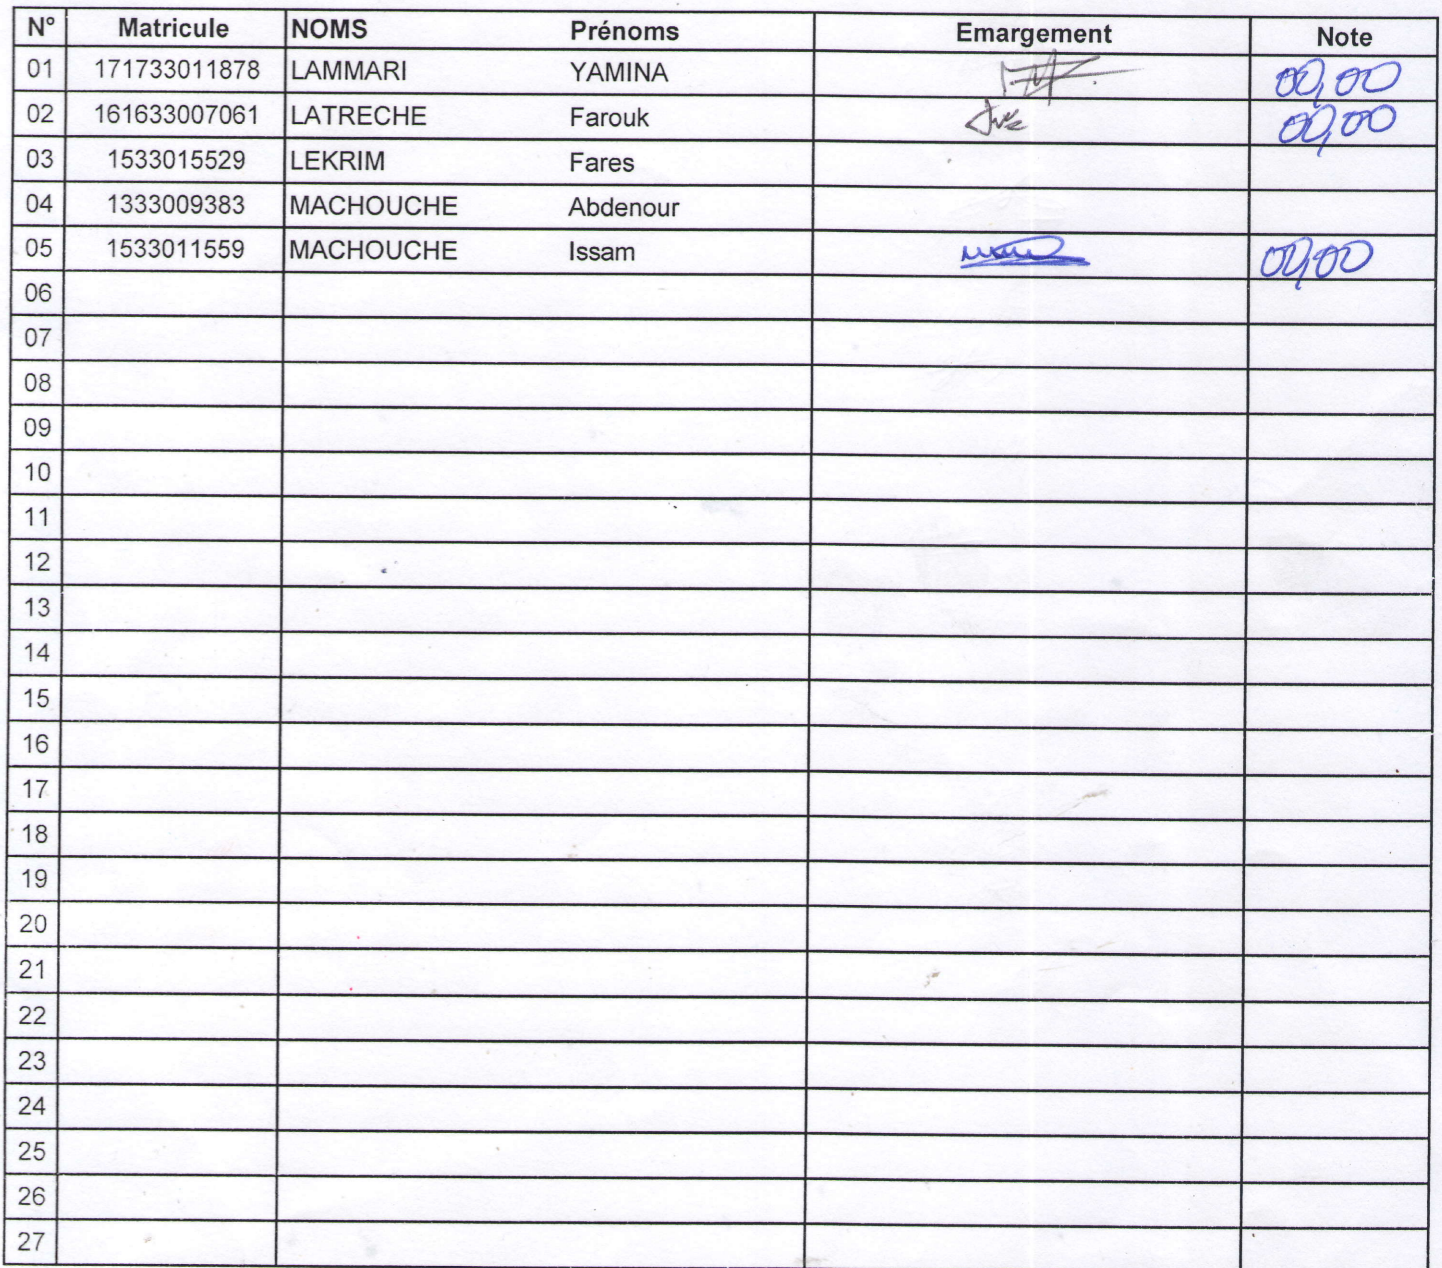 N° Matricule NOMS Prénoms Emargement Note
01 171733011878 LAMMARI YAMINA 00,00
02 161633007061 LATRECHE Farouk 00,00
03 1533015529 LEKRIM Fares
04 1333009383 MACHOUCHE Abdenour
05 1533011559 MACHOUCHE Issam 00,00
06
07
08
09
10
11
12
13
14
15
16
17
18
19
20
21
22
23
24
25
26
27